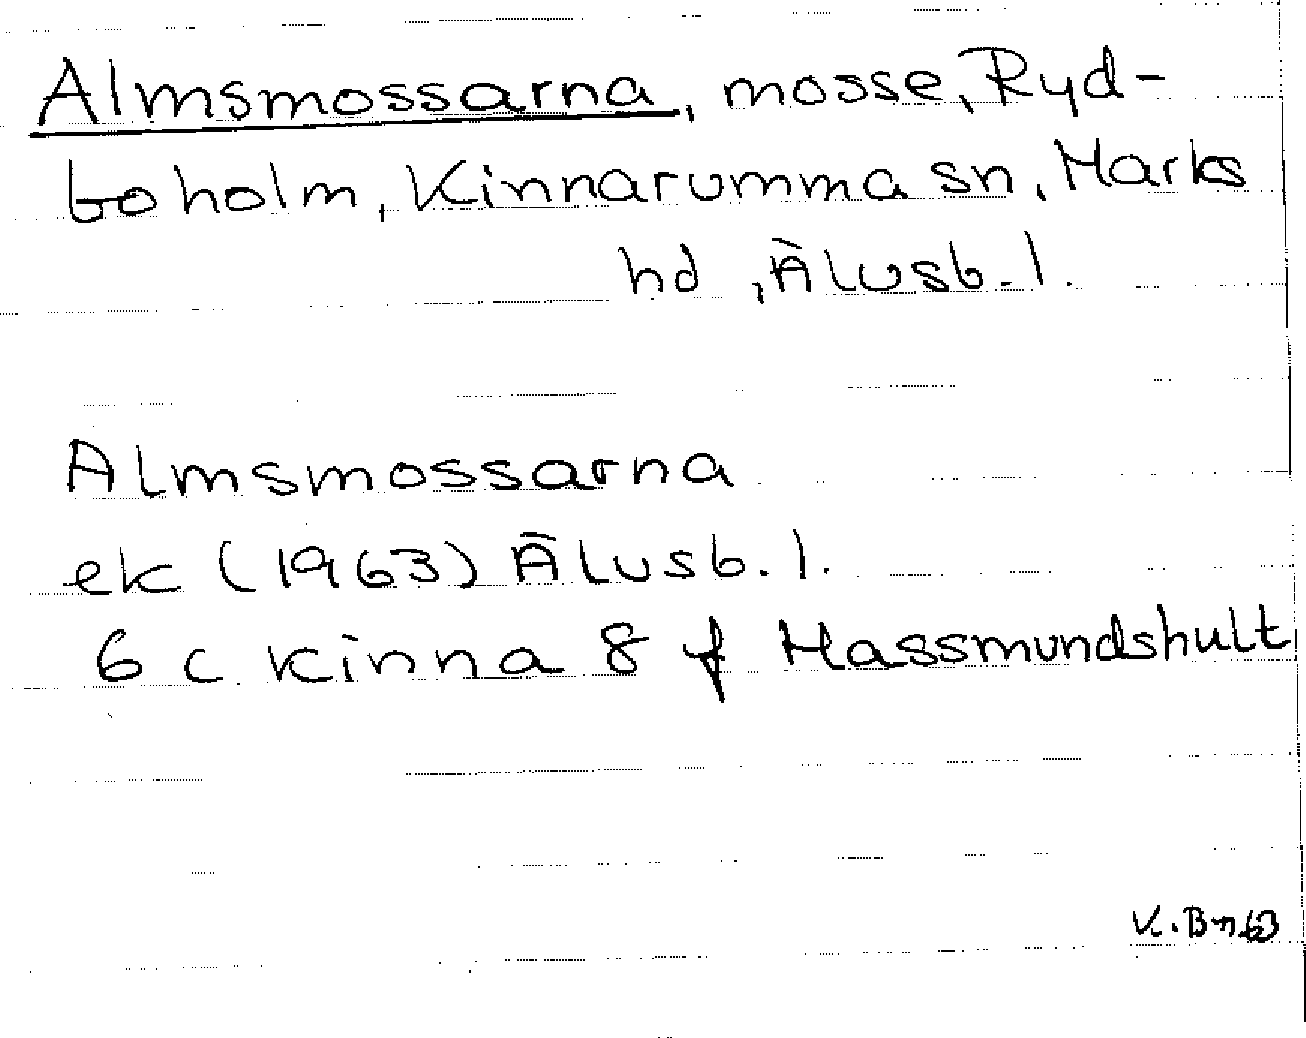 Almsmossarna, mosse, Ryd-
boholm, Kinnarumma sn, Marks
hd, Älvsb. l.
Almsmossarna
ek (1963) Älvsb. l.
6 C Kinna 8 f Hassmundshult
K. Bn 63